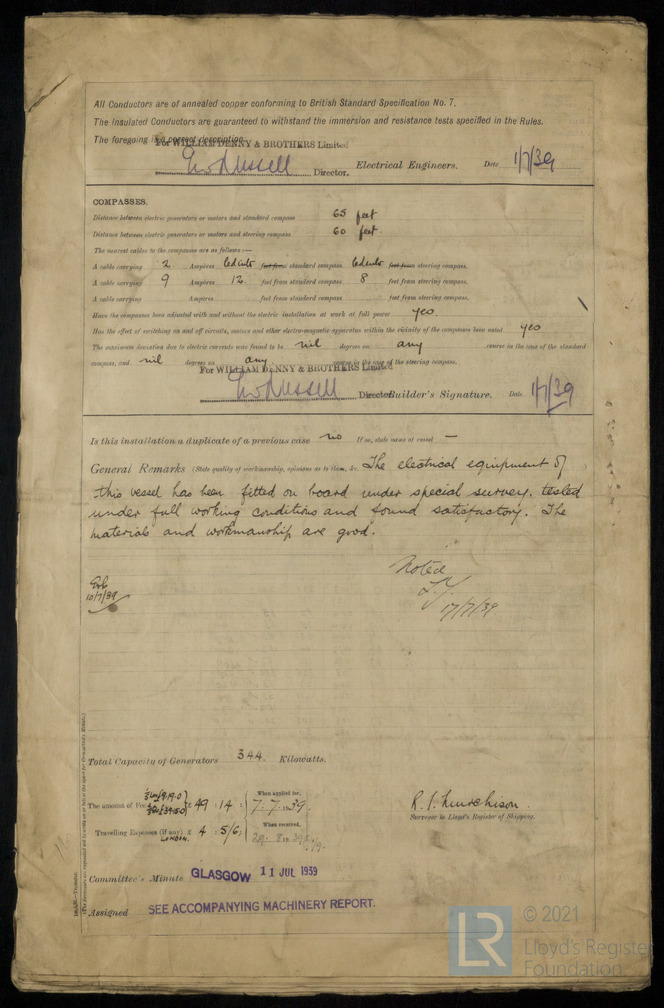 All Conductors are of annealed copper conforming to British Standard Specification No. 7.
The Insulated Conductors are guaranteed to withstand the immersion and resistance tests specified in the Rules.
The foregoing is a correct description.
For WILLIAM DENNY & BROTHERS Limited
Director. Electrical Engineers. Date 1/7/39
COMPASSES.
Distance between electric generators or motors and standard compass 65 feet
Distance between electric generators or motors and steering compass 60 feet.
The nearest cables to the compasses are as follows:—
A cable carrying 2 Ampères led into feet from standard compass led into feet from steering compass.
A cable carrying 9 Ampères 12 feet from standard compass 8 feet from steering compass.
A cable carrying Ampères feet from standard compass feet from steering compass.
Have the compasses been adjusted with and without the electric installation at work at full power yes
Has the effect of switching on and off circuits, motors and other electro-magnetic apparatus within the vicinity of the compasses been noted yes
The maximum deviation due to electric currents was found to be nil degrees on any course in the case of the standard
compass, and nil degrees on any course in the case of the steering compass.
For WILLIAM DENNY & BROTHERS Limited
Director Builder's Signature. Date 1/7/39
Is this installation a duplicate of a previous case no If so, state name of vessel —
General Remarks (State quality of workmanship, opinions as to class, &c. The electrical equipment of
this vessel has been fitted on board under special survey, tested
under full working conditions and found satisfactory. The
materials and workmanship are good.
Noted
17/7/39
10/7/39
Total Capacity of Generators 344 Kilowatts.
The amount of Fee £ 49 : 14 : When applied for, 7.7.1939.
Travelling Expenses (if any) £ 4 : 5/6 : When received,
LONDON.
Surveyor to Lloyd's Register of Shipping.
Committee's Minute GLASGOW 11 JUL 1939
Assigned SEE ACCOMPANYING MACHINERY REPORT.
LR © 2021
Lloyd's Register
Foundation